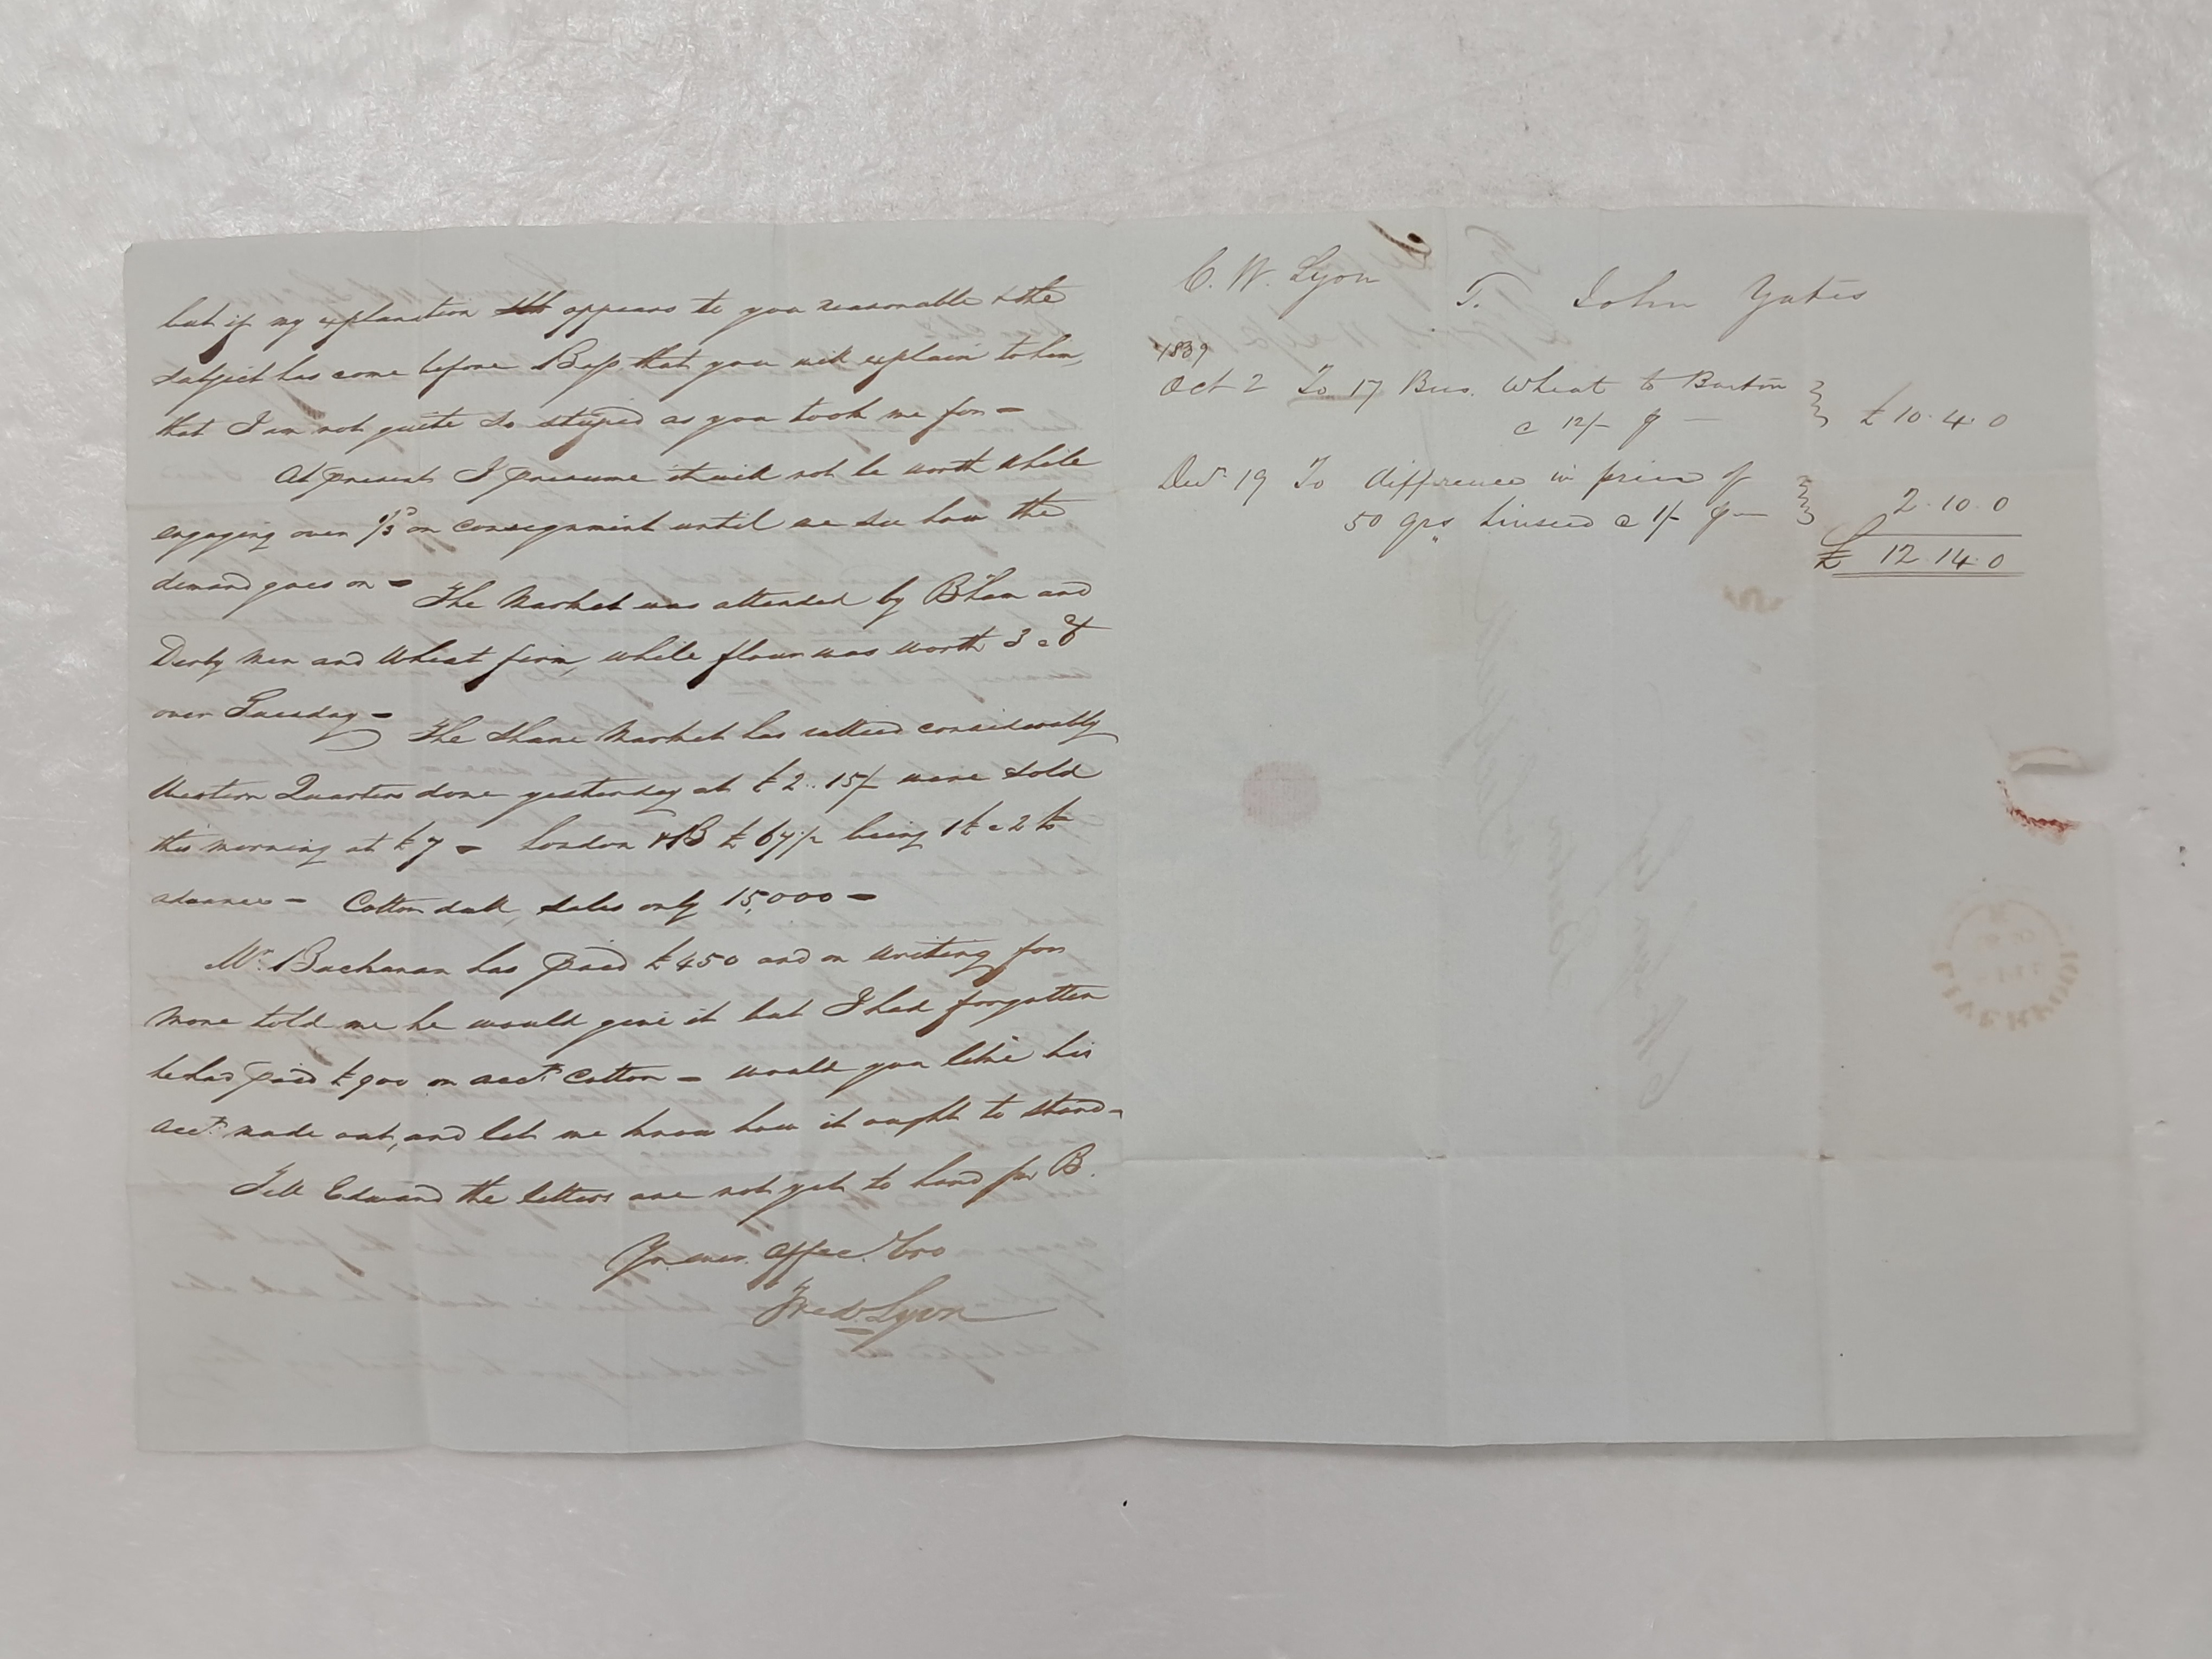 but if my explanation appears to you reasonable & the
subject has come before Bass that you will explain to him,
that I am not quite so stupid as you took me for -
At present I presume it will not be worth while
engaging over 1/3 on consignment until we see how the
demand goes on - The Market was attended by B'ham and
Derby men and Wheat firm, while flour was worth 3
over Tuesday - The Share Market has rallied considerably
Western Quarters done yesterday at £2..15/- were sold
this morning at £7 - London & B £ being 1£ a 2£
advance - Cotton dull, sales only 15,000 -
Mr. Buchanan has paid £450 and on writing for
more told me he would give it but I had forgotten
he had paid £900 on acct. Cotton - would you like his
acct. made out, and let me know how it ought to stand -
Tell Edward the letters are not yet to hand for B.
Yr. ever affec. bro
Fred Lyon
C. W. Lyon
T. John Yates
1839
Oct 2 To 17 Bus. Wheat to Burton
@ 12/- £ 10.4.0
Decr. 19 To difference in price of
50 qrs linseed @ 1/- 2.10.0
£ 12.14.0
LIVERPOOL